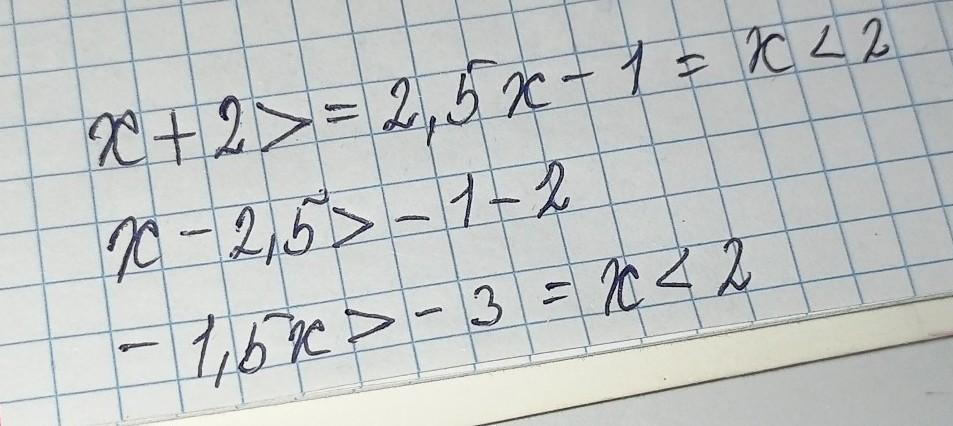 x + 2 > = 2,5x - 1 = x < 2
x - 2,5 > - 1 - 2
- 1,5x > - 3 = x < 2